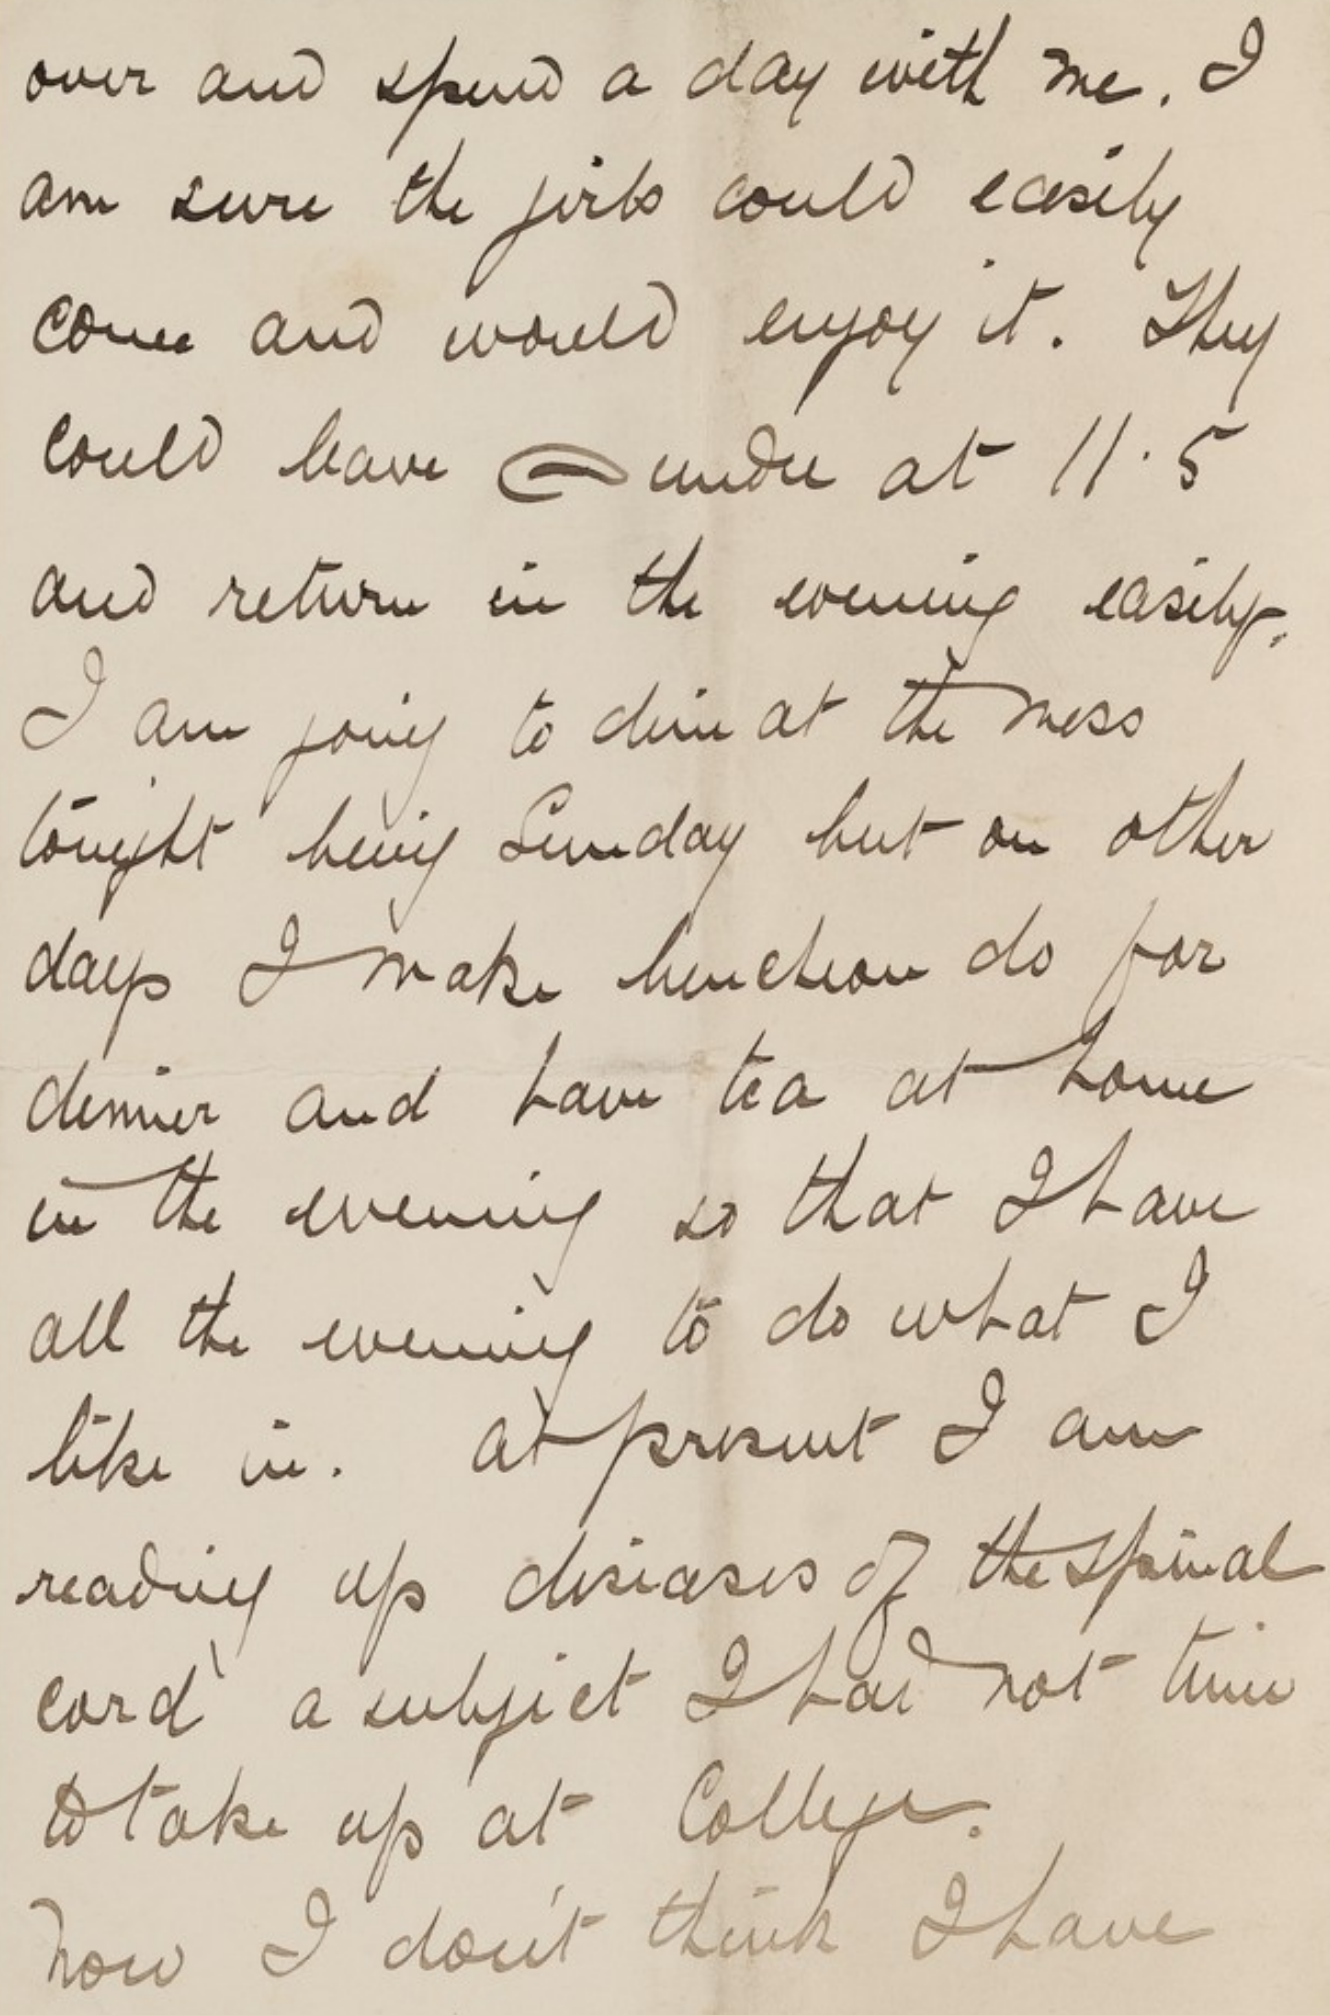 over and spend a day with me. I
am sure the girls could easily
come and would enjoy it. They
could leave Dundee at 11.5
and return in the evening easily.
I am going to dine at the mess
tonight being Sunday but on other
days I make luncheon do for
dinner and have tea at home
in the evening so that I have
all the evening to do what I
like in. At present I am
reading up diseases of the spinal
cord a subject I had not time
to take up at College.
Now I don't think I have